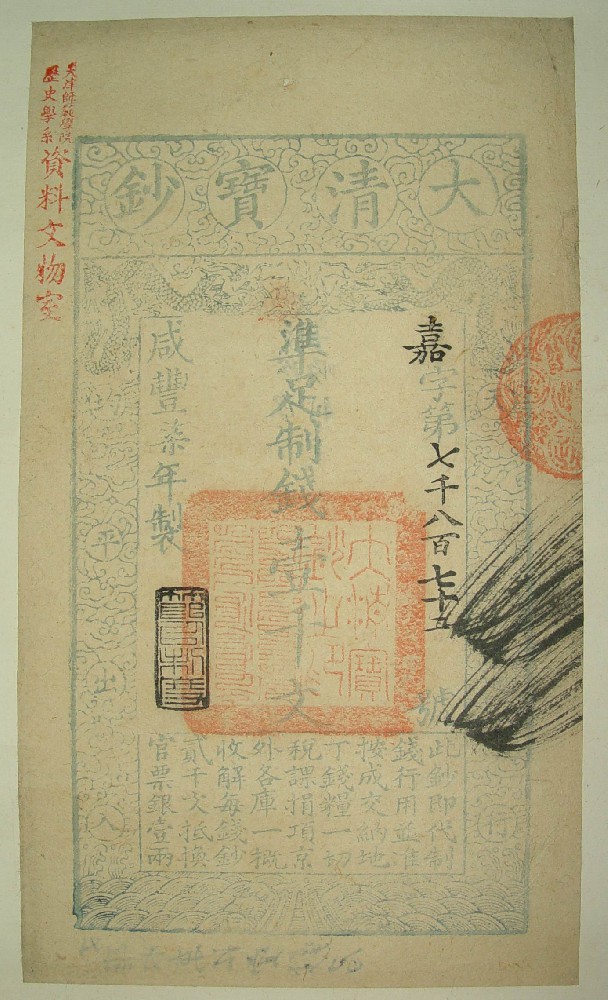 天津師範學院
歷史學系
資料文物室
大清寶鈔
嘉字第七千八百七十五號
準足制錢壹千文
咸豐柒年製
天下
均平出入
行
此鈔即代制
錢行用並准
按成交納地
丁錢糧一切
稅課捐項京
外各庫一概
收解每錢鈔
貳千文抵換
官票銀壹兩